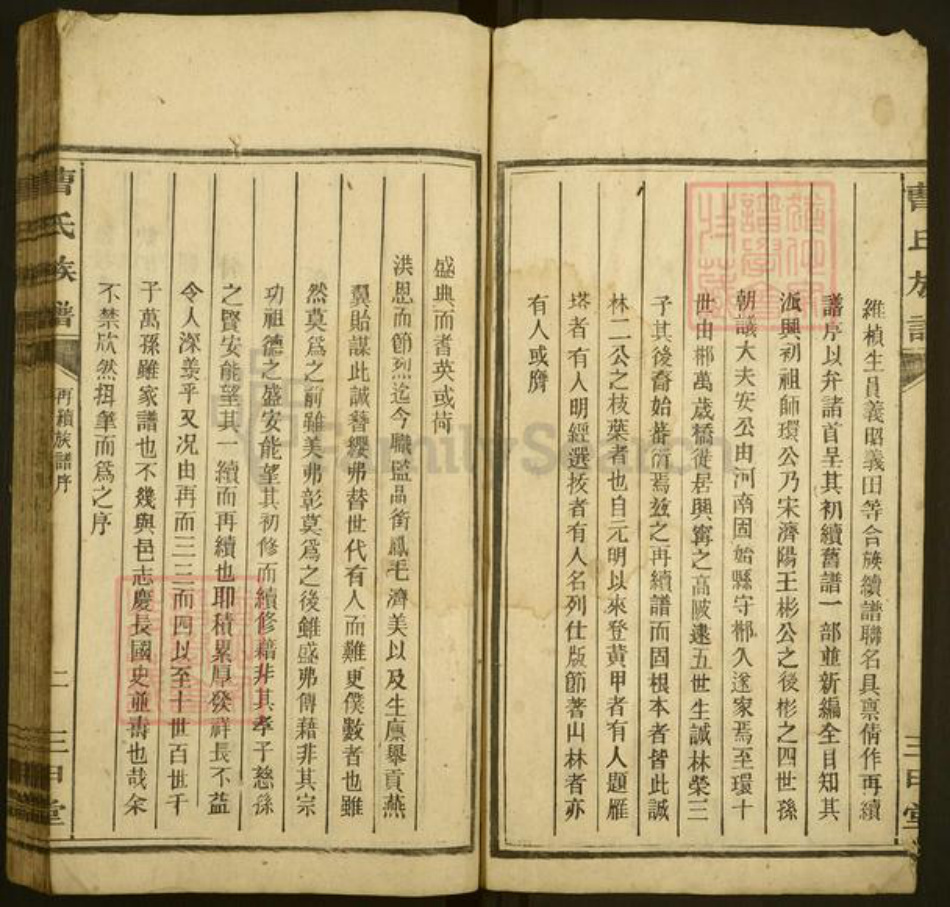 曹氏族譜
維楨生員義昭義田等合族續譜聯名具稟倩作再續
譜序以弁諸首呈其初續舊譜一部並新編全目知其
派興初祖師環公乃宋濟陽王彬公之後彬之四世孫
朝議大夫安公由河南固始縣守郴久遂家焉至環十
世由郴萬歲橋徙居興寧之高陂逮五世生誠林榮三
子其後裔始蕃衍焉茲之再續譜而固根本者皆此誠
林二公之枝葉者也自元明以來登黃甲者有人題雁
塔者有人明經選拔者有人名列仕版節著山林者亦
有人或膺
三甲堂
盛典而耆英或荷
洪恩而節烈迄今職監品銜鳳毛濟美以及生廩舉貢燕
翼貽謀此誠簪纓弗替世代有人而難更僕數者也雖
然莫爲之前雖美弗彰莫爲之後雖盛弗傳藉非其宗
功祖德之盛安能望其初修而續修藉非其孝子慈孫
之賢安能望其一續而再續也耶積累厚發祥長不益
令人深羨乎又况由再而三三而四以至十世百世千
子萬孫雖家譜也不幾與邑志慶長國史並壽也哉余
不禁欣然揖筆而爲之序
曹氏族譜
再續族譜序
二
三甲堂
FamilySearch